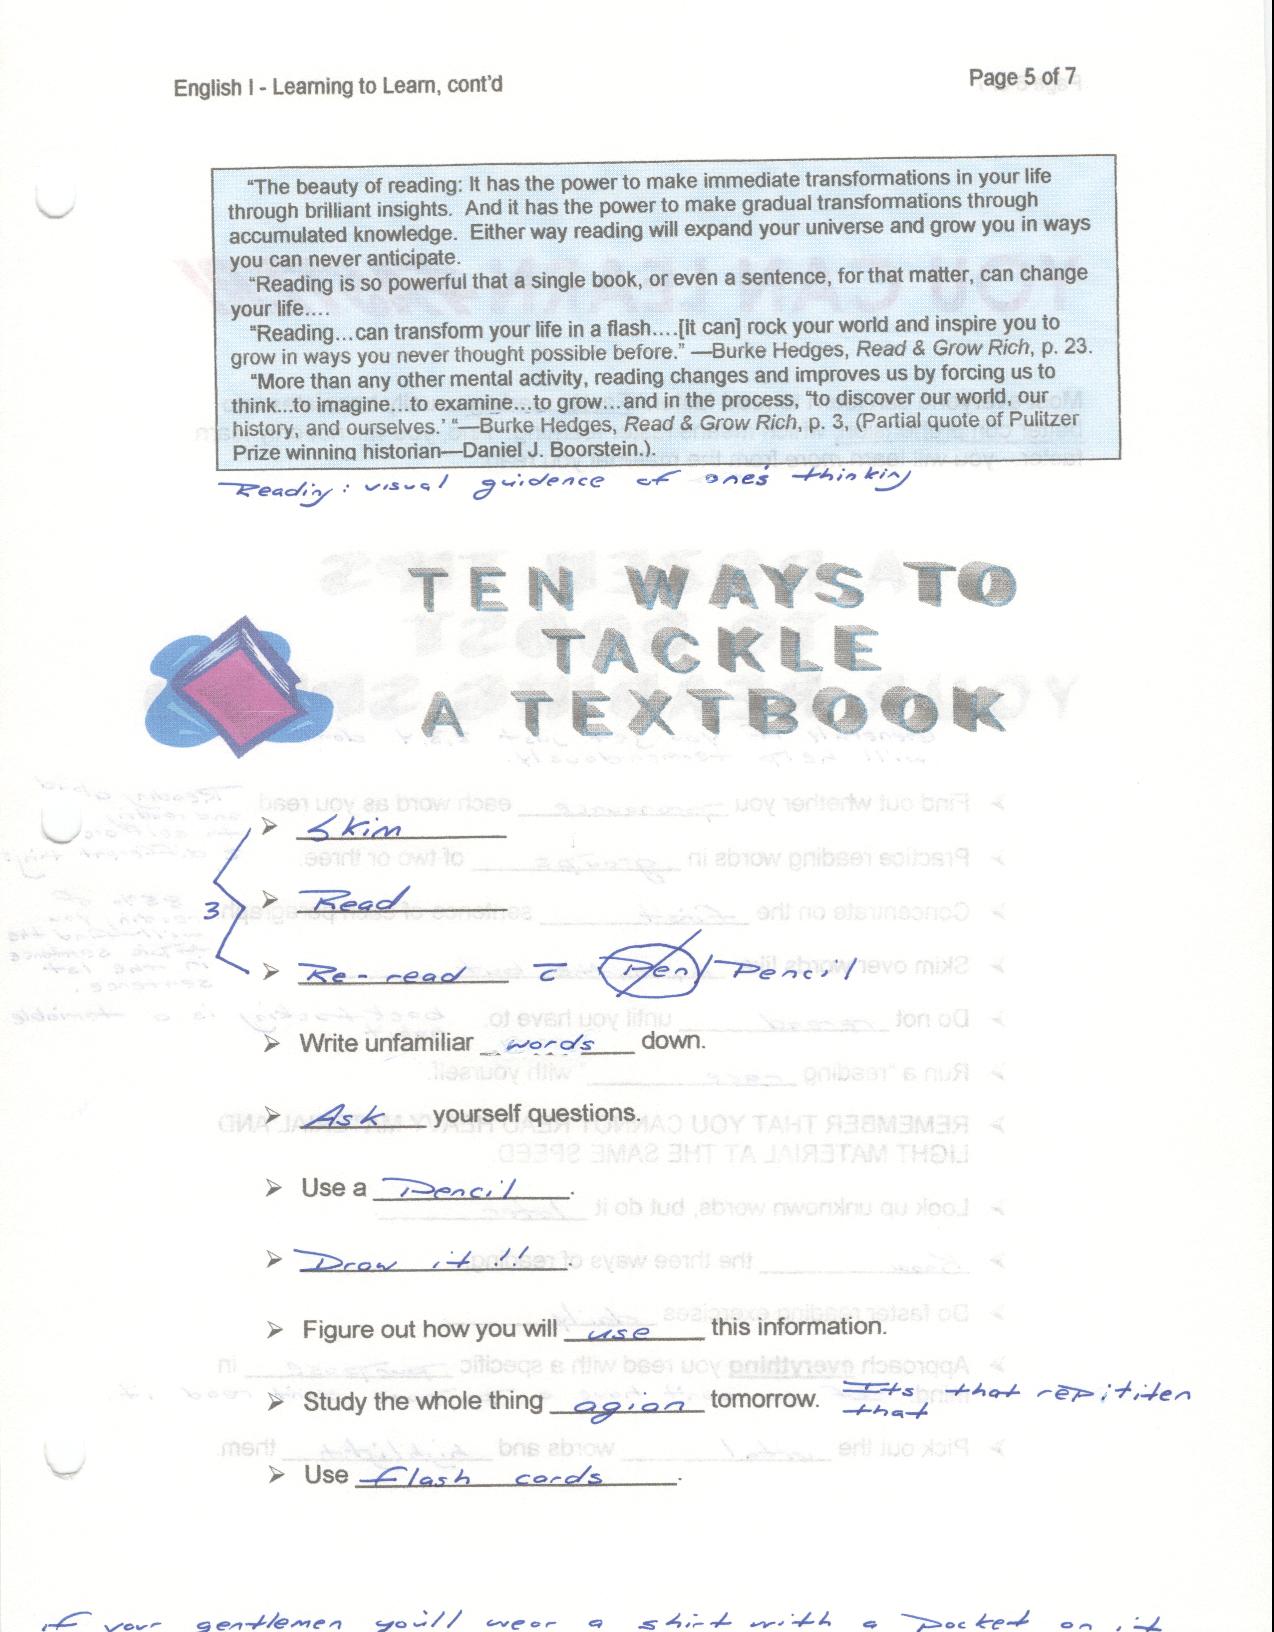 English I - Learning to Learn, cont'd
Page 5 of 7
"The beauty of reading: It has the power to make immediate transformations in your life
through brilliant insights. And it has the power to make gradual transformations through
accumulated knowledge. Either way reading will expand your universe and grow you in ways
you can never anticipate.
"Reading is so powerful that a single book, or even a sentence, for that matter, can change
your life....
"Reading...can transform your life in a flash....[it can] rock your world and inspire you to
grow in ways you never thought possible before." —Burke Hedges, Read & Grow Rich, p. 23.
"More than any other mental activity, reading changes and improves us by forcing us to
think...to imagine...to examine...to grow...and in the process, "to discover our world, our
history, and ourselves.' "—Burke Hedges, Read & Grow Rich, p. 3, (Partial quote of Pulitzer
Prize winning historian—Daniel J. Boorstein.).
Reading: visual guidence of one's thinking
TEN WAYS TO
TACKLE
A TEXTBOOK
➢ Skim
➢ Read
3
➢ Re-read c̄ Pen/Pencil
➢ Write unfamiliar words down.
➢ Ask yourself questions.
➢ Use a Pencil.
➢ Draw it!!.
➢ Figure out how you will use this information.
➢ Study the whole thing agian tomorrow. Its that repititen
that
➢ Use flash cards.
if your gentlemen you'll wear a shirt with a pocket on it